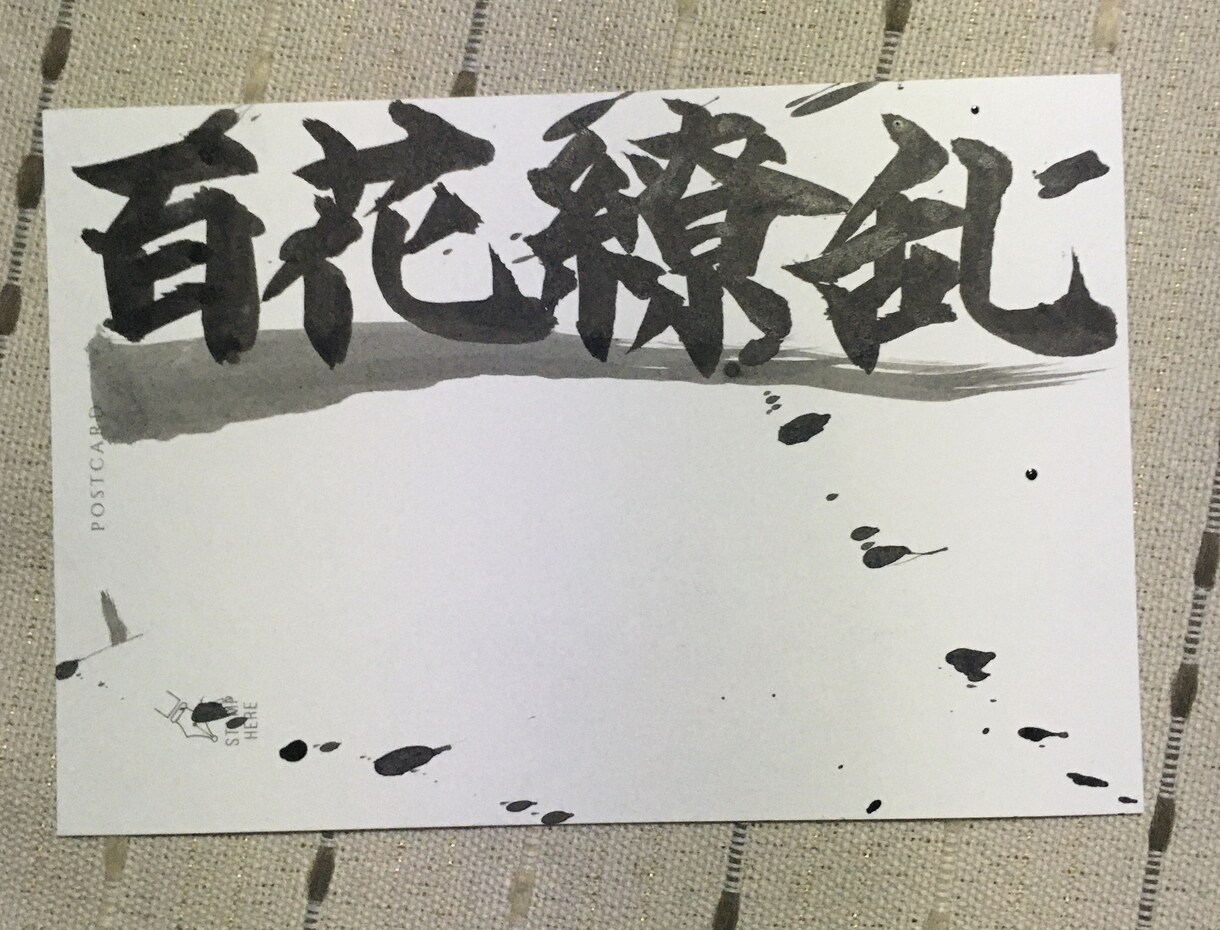 百花繚乱
POSTCARD
STAMP
HERE